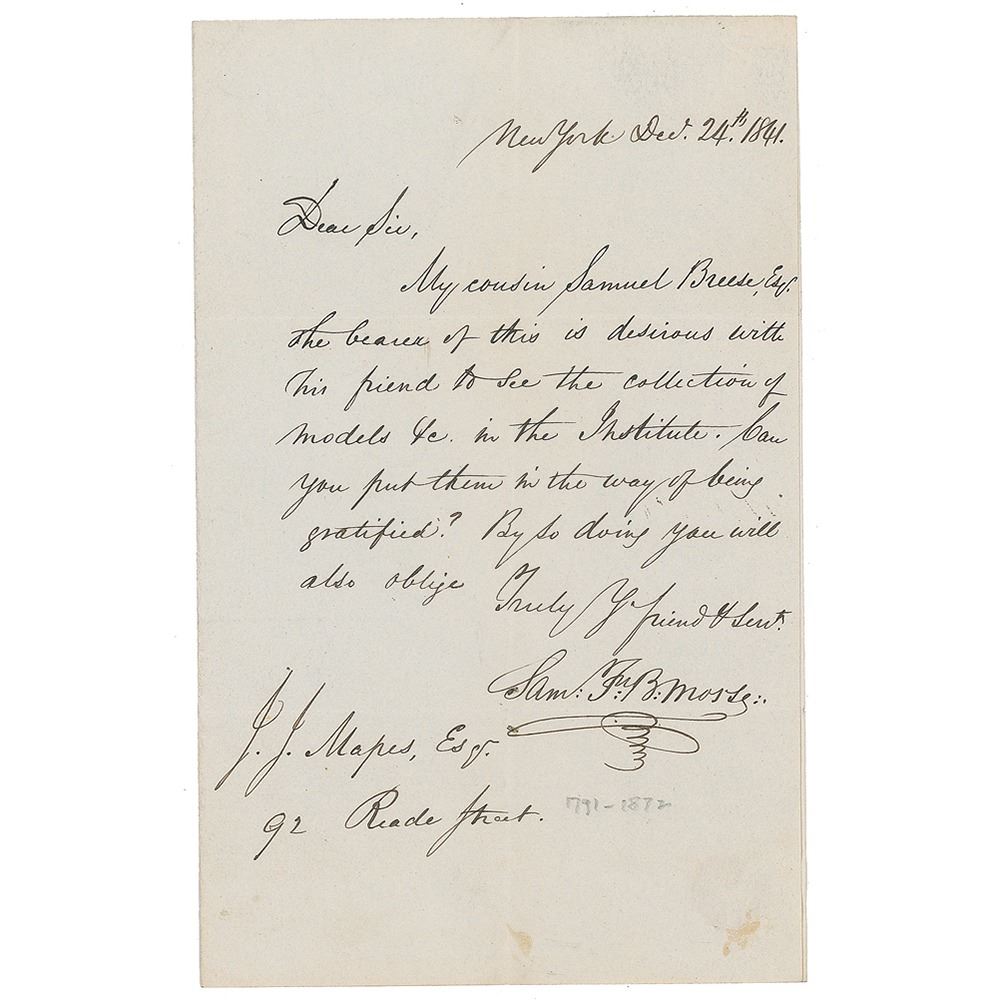 New York Decr. 24th. 1841.
Dear Sir,
My cousin Samuel Breese, Esqr.
the bearer of this is desirous with
his friend to see the collection of
models &c. in the Institute. Can
you put them in the way of being
gratified? By so doing you will
also oblige
Truly Yr friend & Servt.
Sam: F: B: Morse:.
J. J. Mapes, Esqr.
92 Reade Street.
1791-1872